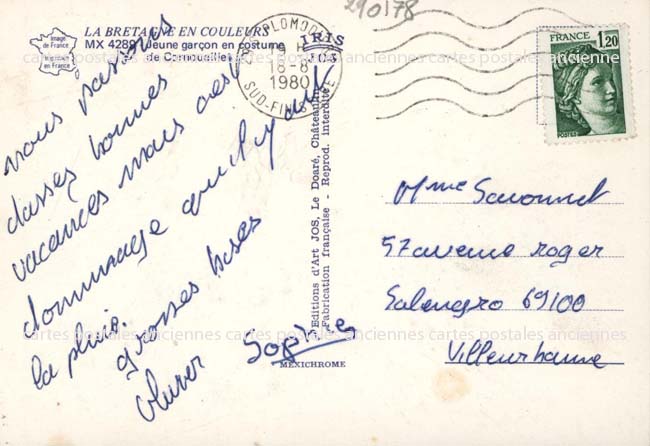 290178
LA BRETAGNE EN COULEURS
MX 4289 Jeune garçon en costume
de Cornouaille
Image
de France
Imprimé
en France
IRIS
JOS
PLOMODIERN
18-8
1980
SUD-FINISTERE
FRANCE
1,20
POSTES
nous passons
d'assez bonnes
vacances mais c'est
dommage qu'il y ait
la pluie.
grosses bises
Oliver
Sophie
Editions d'Art JOS, Le Doaré, Châteaulin
Fabrication française - Reprod. interdite
MEXICHROME
Mme Savonnet
57 avenue roger
Salengro 69100
Villeurbanne
cartes postales anciennes cartes postales anciennes cartes postales anciennes